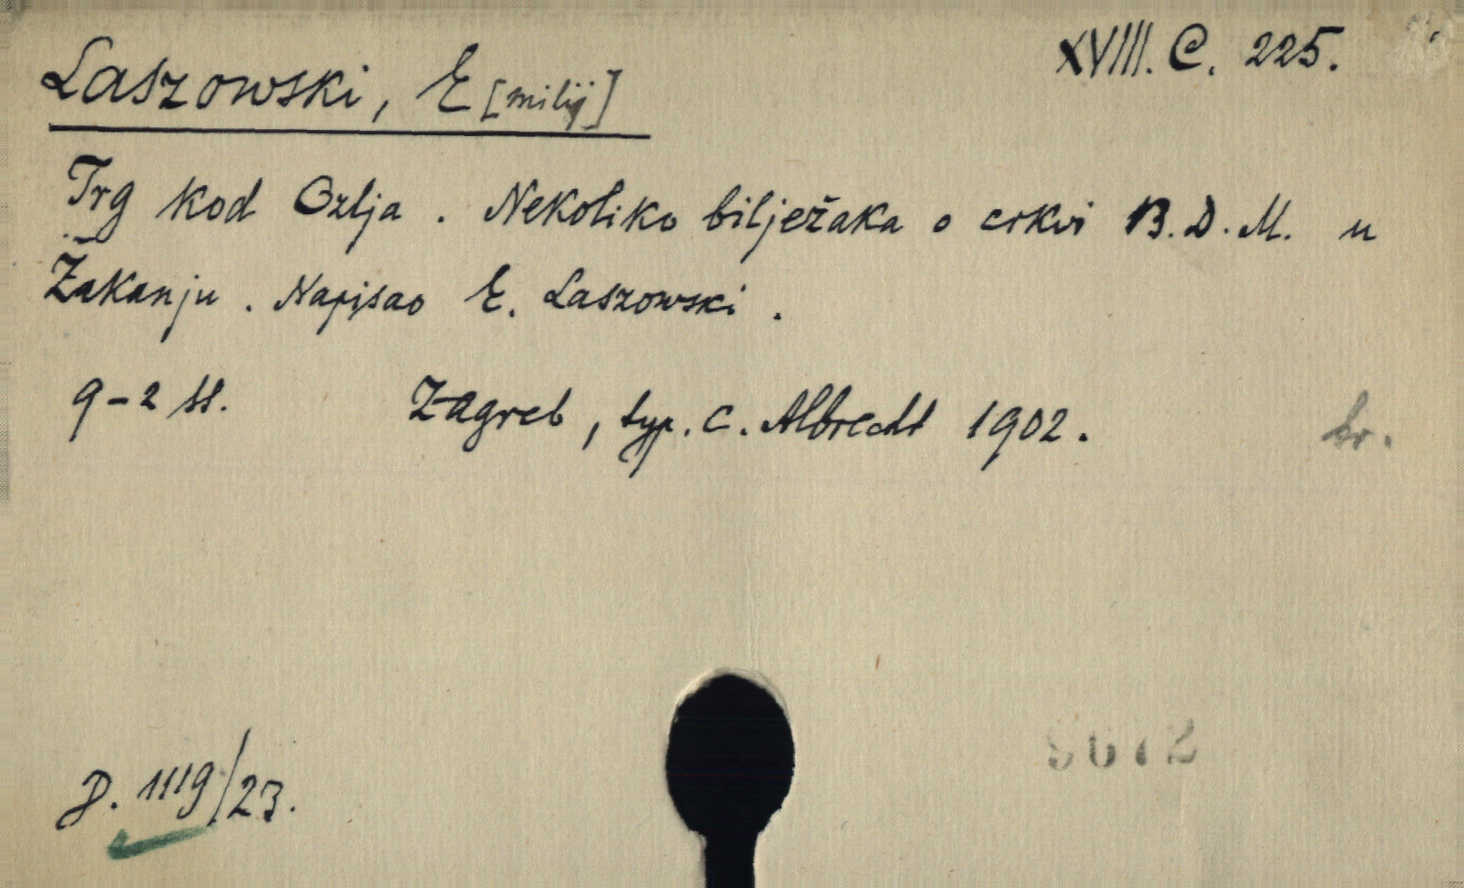 XVIII. C. 225.
Laszowski, E [milij]
Trg kod Ozlja . Nekoliko bilježaka o crkvi B.D.M. u
Žakanju . Napisao E. Laszowski .
9-2 ss. Zagreb , typ. C. Albrecht 1902 .
br.
9672
D. 1119/23.